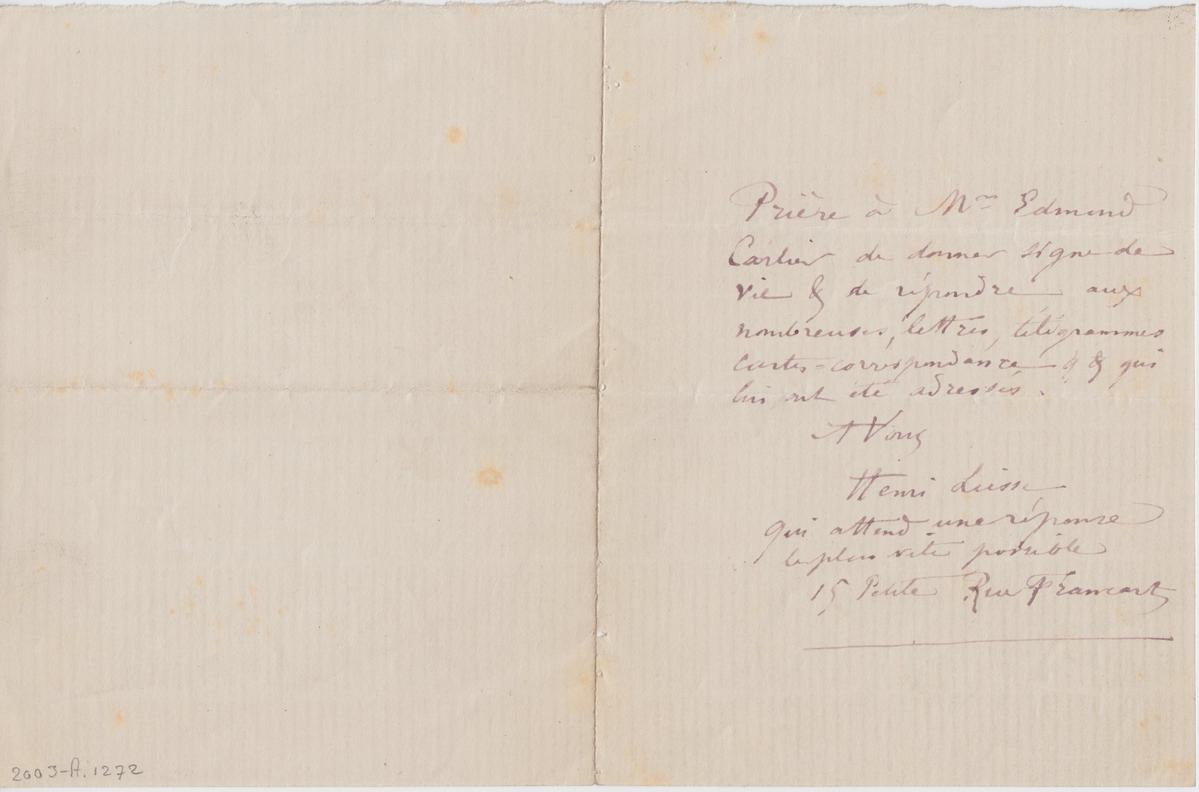 Prière à Mr Edmond
Cartier de donner signe de
vie & de répondre aux
nombreuses, lettres, télégrammes
cartes-correspondance & qui
lui ont été adressés.
A Vous
Henri
qui attend une réponse
le plus vite possible
15 Petite Rue
2003-A.1272